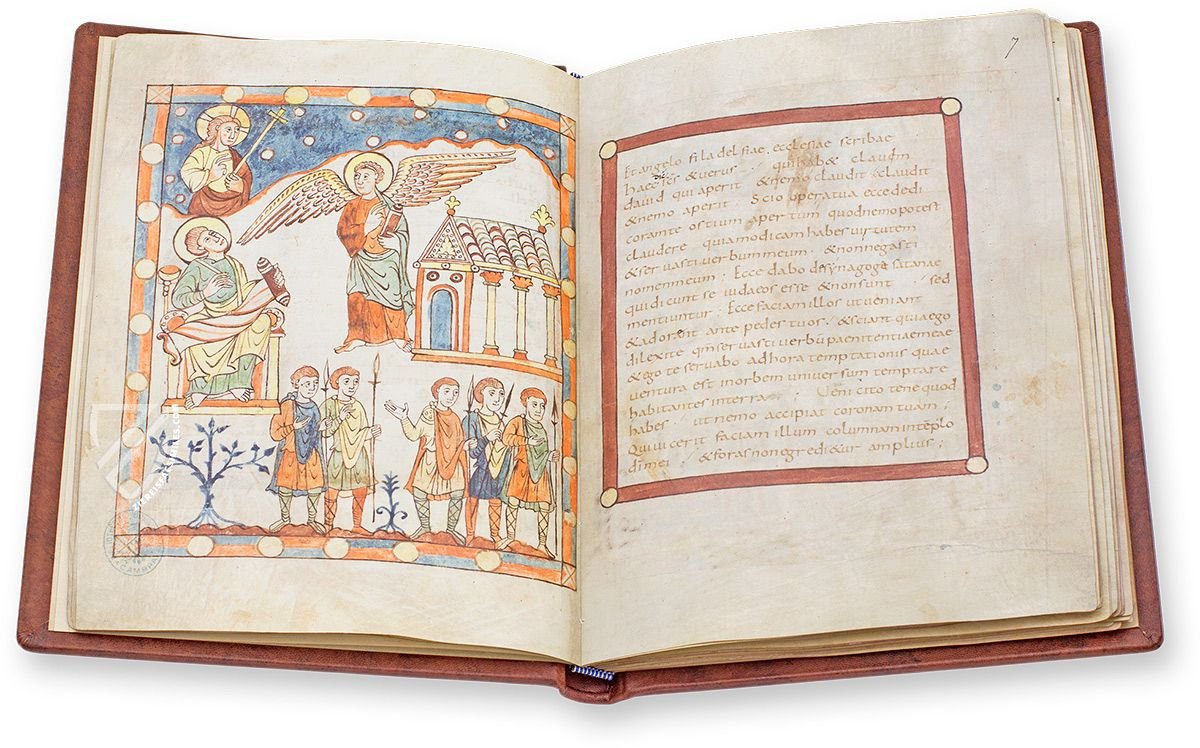 7
Et angelo filadelfiae, ecclesiae scribae
haec scs & verus qui hab& clauem
dauid qui aperit & nemo claudit & claudit
& nemo aperit Scio opera tua ecce dedi
corante ostium apertum quod nemo potest
claudere quia modicam habes uirtutem
& seruasti uerbum meum & non negasti
nomen meum Ecce dabo de synagoge satanae
qui dicunt se iudaeos esse & non sunt sed
mentiuntur Ecce faciam illos ut ueniant
& adorent ante pedes tuos & sciant quia ego
dilexi te qm seruasti uerbū paenitentiae meae
& ego te seruabo ad hora temptationis quae
uentura est in orbem uniuersum temptare
habitantes in terra Ueni cito tene quod
habes ut nemo accipiat coronam tuam
Qui uicerit faciam illum columnam in tēplo
dī mei & foras non egredi&ur amplius